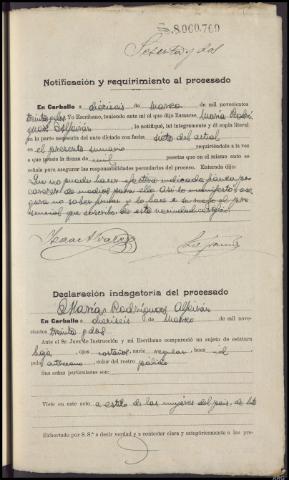 8.060.760
Sesenta y dos
Notificación y requirimiento al procesado
En Carballo a dieciseis de Marzo de mil novecientos
treinta y dos Yo Escribano, teniendo ante mi al que dijo llamarse María Rodrí
guez , le notifiqué, leí íntegramente y dí copia literal
en la parte necesaria del auto dictado con fecha siete del actual
en el presente sumario requiriéndole a la vez
a que preste la fianza de mil pesetas que en el mismo auto se
señala para asegurar las responsabilidades pecuniarias del proceso. Enterado dijo:
Que no puede hacer efectiva indicada fianza por
carecer de medios para ello. Así lo manifestó, ase
gura no saber firmar y lo hace
de este
Isaac Alvarez
Declaración indagatoria del procesado
María Rodríguez
En Carballo a dieciseis de Marzo de mil nove-
cientos treinta y dos
Ante el Sr. Juez de Instrucción y mi Escribano compareció un sujeto de estatura
baja, ojos castaños, nariz regular, boca id
pelo color del rostro
Sus señas particulares son:
Viste en este acto a estilo de las mujeres del pais, de luto
Exhortado por S. S.ª a decir verdad y a contestar clara y categóricamente a las pre-